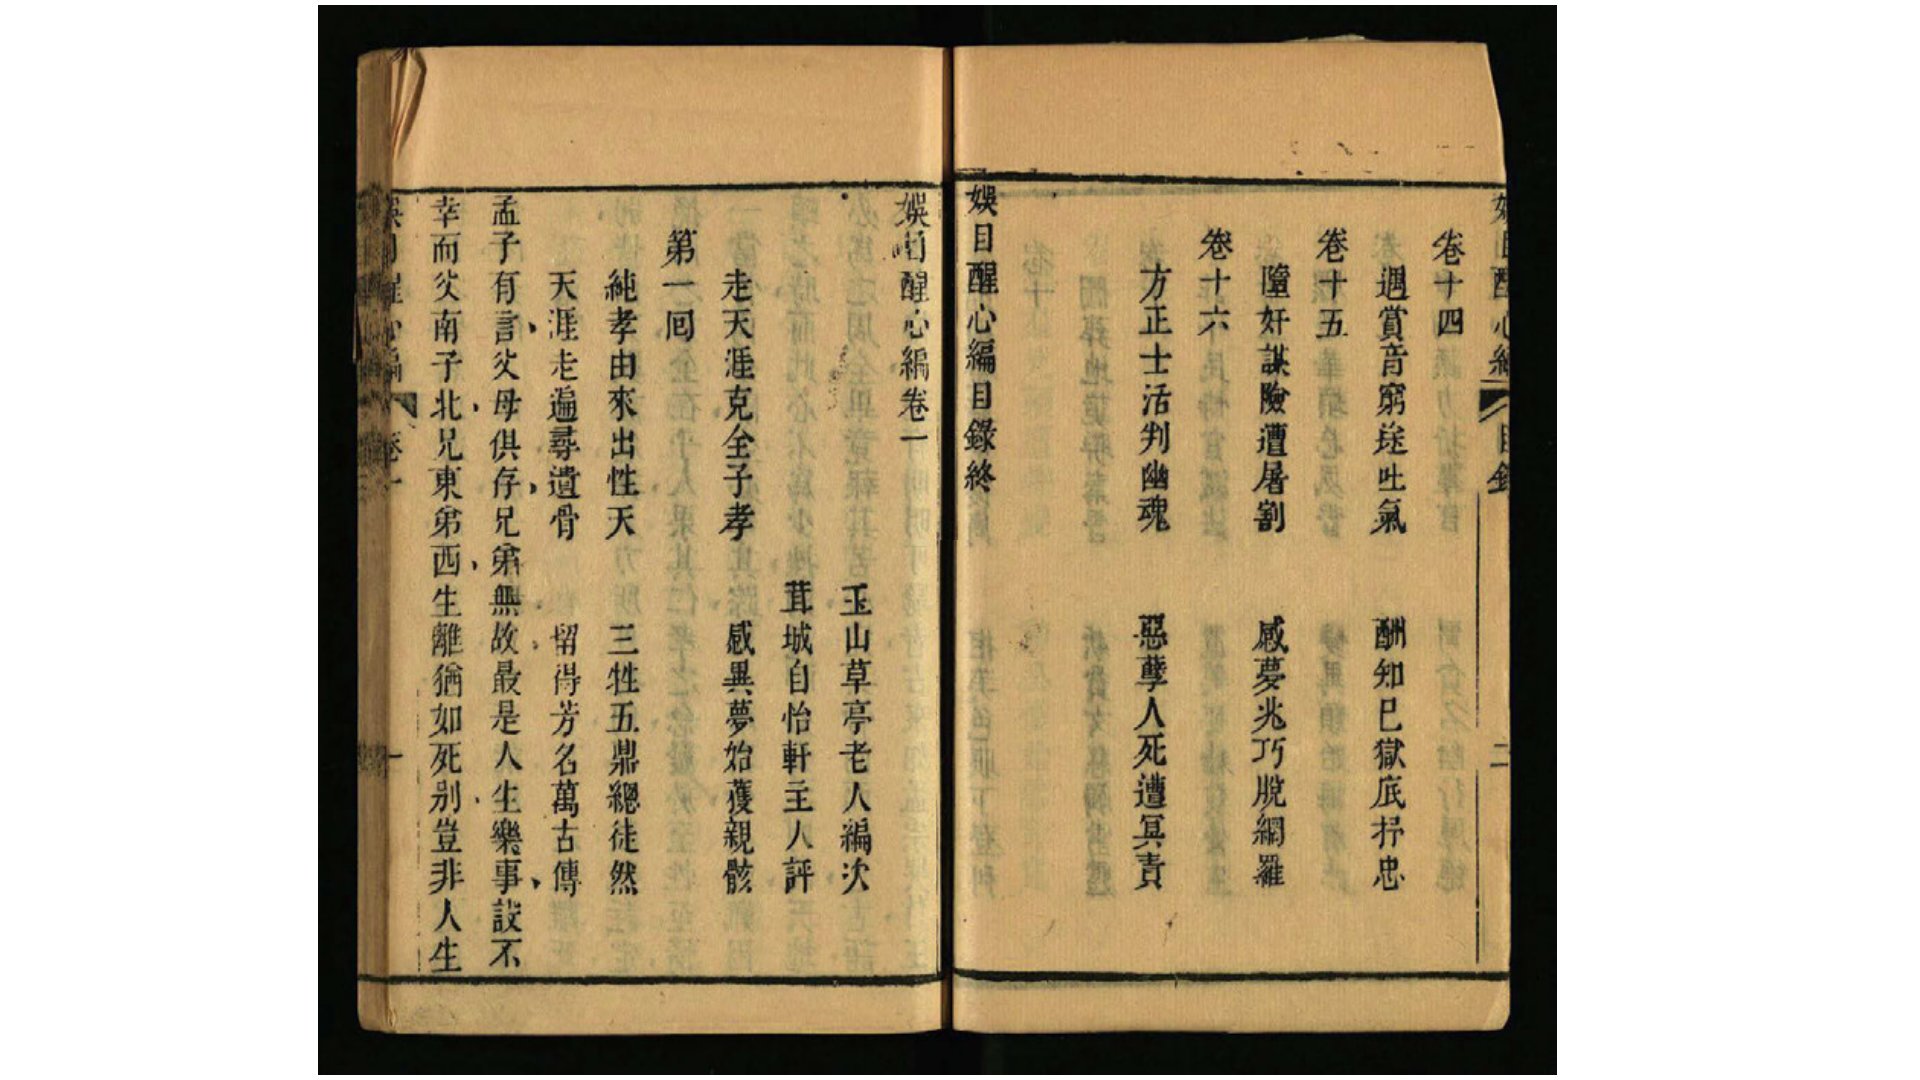 卷十四
遇賞音窮途吐氣　酬知己獄底抒忠
卷十五
墮奸謀險遭屠割　感夢兆巧脫網羅
卷十六
方正士活判幽魂　惡孽人死遭冥責
娛目醒心編目錄終
娛目醒心編卷一
玉山草亭老人編次
茸城自怡軒主人評
走天涯克全子孝　感異夢始獲親骸
第一回
純孝由來出性天　三牲五鼎總徒然
天涯走遍尋遺骨　留得芳名萬古傳
孟子有言父母俱存兄弟無故最是人生樂事設不
幸而父南子北兄東弟西生離猶如死别豈非人生